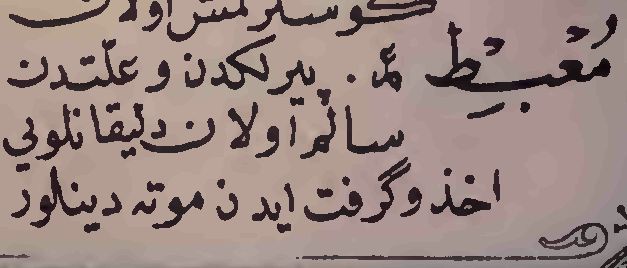 كوسترلمش اولان
مُعْبِطٌ ھ. پيرلكدن و علّتدن
سالم اولان دليقانلويى
اخذ و گرفت ايدن موته دينلور